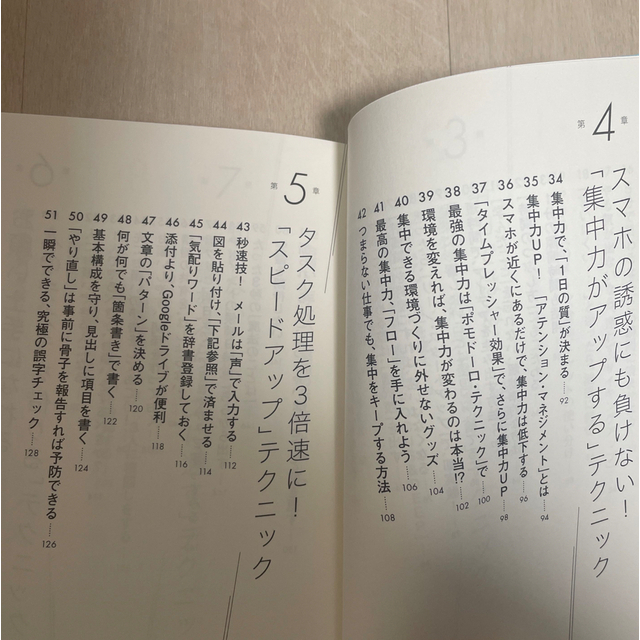 第4章
スマホの誘惑にも負けない!
「集中力がアップする」テクニック
34 集中力で、「1日の質」が決まる……92
35 集中力UP! 「アテンション・マネジメント」とは……94
36 スマホが近くにあるだけで、集中力は低下する……96
37 「タイムプレッシャー効果」で、さらに集中力UP……98
38 最強の集中力は「ポモドーロ・テクニック」で……100
39 環境を変えれば、集中力が変わるのは本当!?……102
40 集中できる環境づくりに外せないグッズ……104
41 最高の集中力、「フロー」を手に入れよう……106
42 つまらない仕事でも、集中をキープする方法……108
第5章
タスク処理を3倍速に!
「スピードアップ」テクニック
43 秒速技! メールは「声」で入力する……112
44 図を貼り付け、「下記参照」で済ませる……114
45 「気配りワード」を辞書登録しておく……116
46 添付より、Googleドライブが便利……118
47 文章の「パターン」を決める……120
48 何が何でも「箇条書き」で書く……122
49 基本構成を守り、見出しに項目を書く……124
50 「やり直し」は事前に骨子を報告すれば予防できる……126
51 一瞬でできる、究極の誤字チェック……128